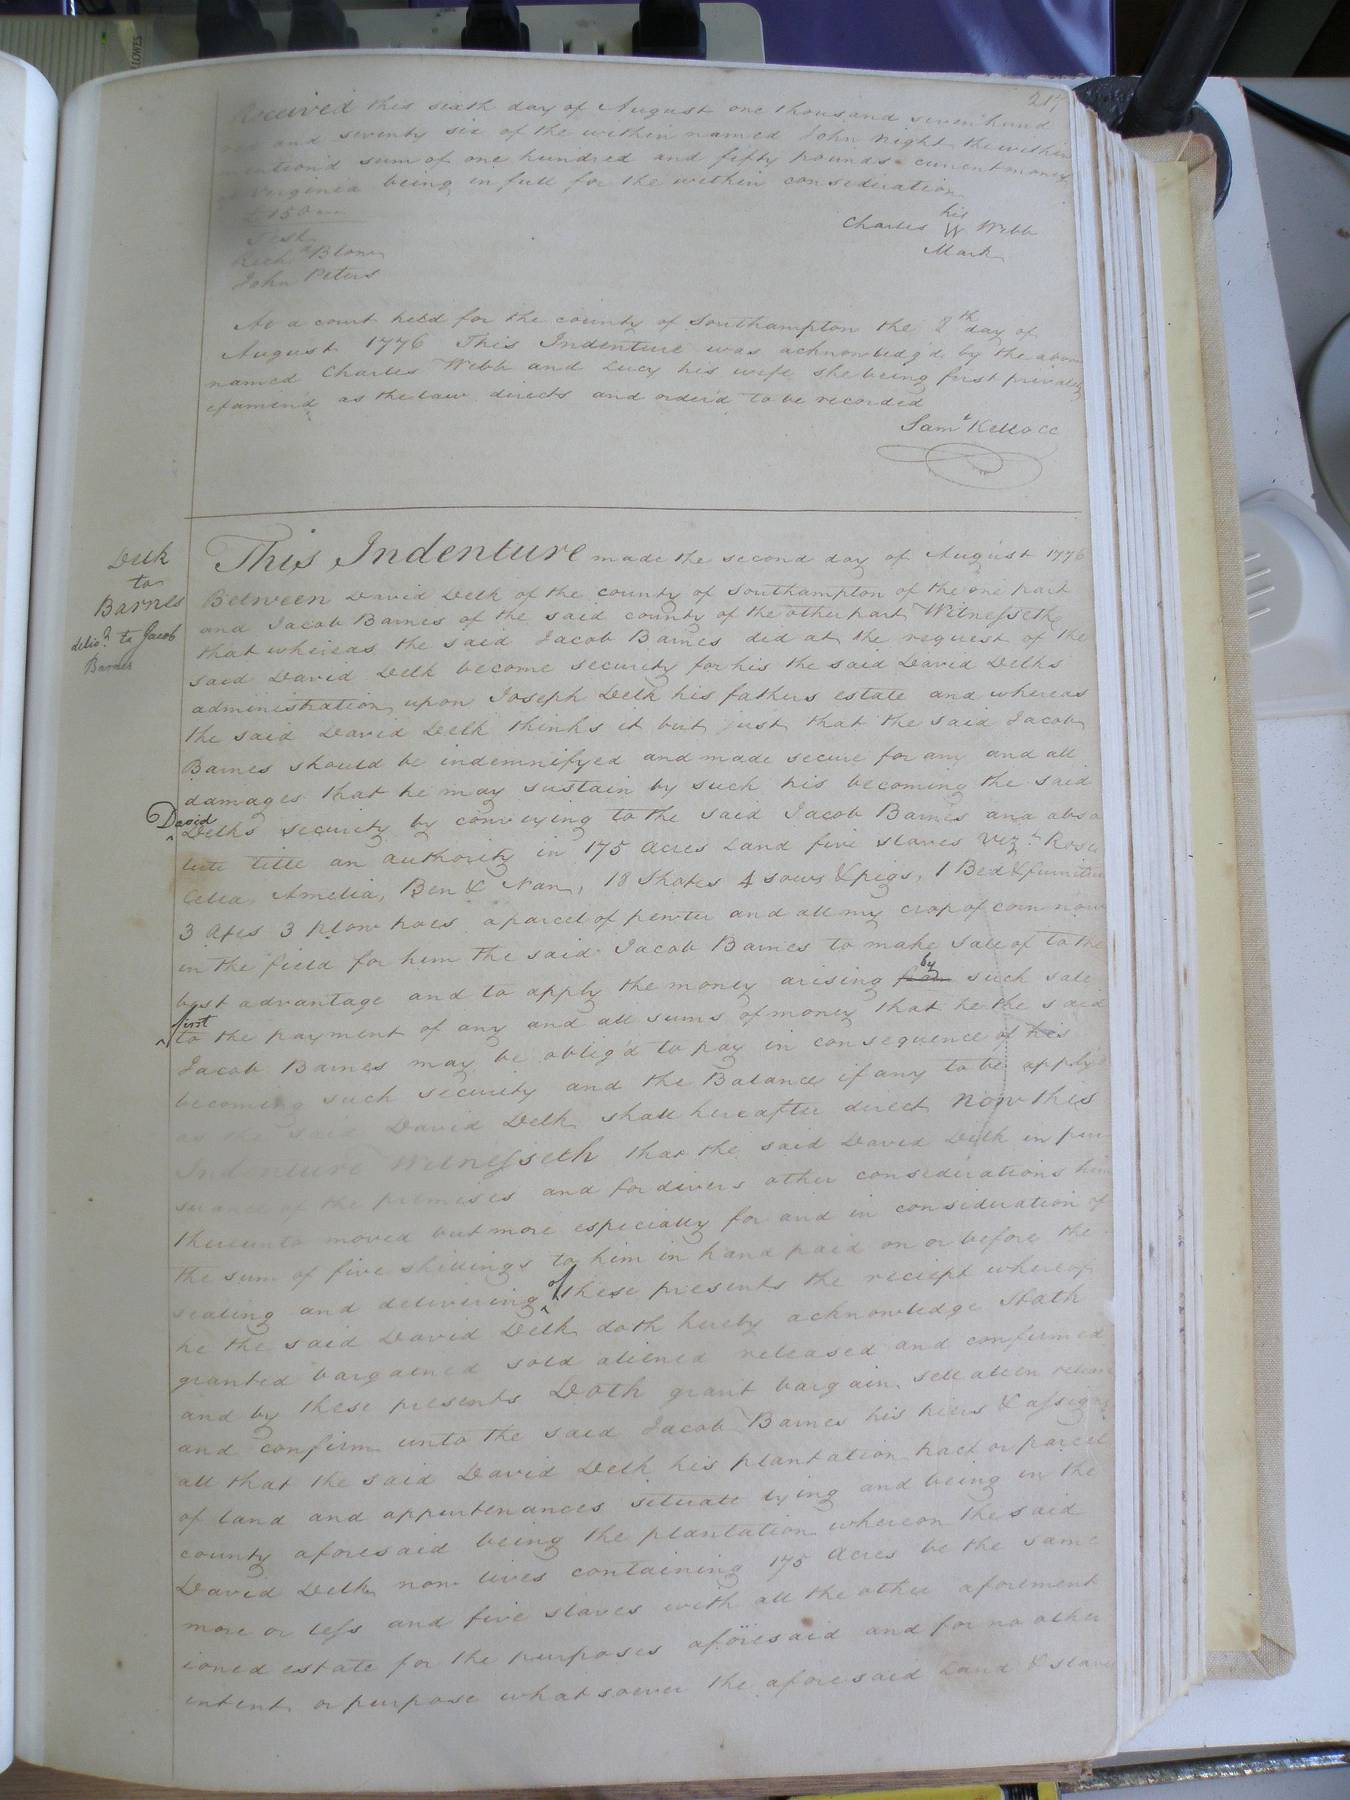 217
Received this sixth day of August one thousand seven hund
red and seventy six of the within named John Night the within
mention'd sum of one hundred and fifty pounds current money
of Virginia being in full for the within consideration
£150
Test
Richd Blow
John Peters
his
Charles W Webb
Mark
At a court held for the county of Southampton the 8th day of
August 1776 This Indenture was acknowledg'd by the above
named Charles Webb and Lucy his wife she being first privately
examin'd as the law directs and order'd to be recorded
Saml Kello CC
Delk
to
Barnes
delivd to Jacob
Barnes
This Indenture made the second day of August 1776
Between David Delk of the county of Southampton of the one part
and Jacob Barnes of the said county of the other part Witnesseth
that whereas the said Jacob Barnes did at the request of the
said David Delk become security for his the said David Delks
administration upon Joseph Delk his fathers estate and whereas
the said David Delk thinks it but just that the said Jacob
Barnes should be indemnifyed and made secure for any and all
damages that he may sustain by such his becoming the said
David
Delks security by conveying to the said Jacob Barnes an abso
lute title an authority in 175 acres Land five slaves viz. Rose
Celea Amelia, Ben & Nan, 18 Shotes 4 sows & pigs, 1 Bed & furniture
3 axes 3 plow hoes a parcel of pewter and all my crop of corn now
in the field for him the said Jacob Barnes to make sale of to the
by
best advantage and to apply the money arising such sale
first
to the payment of any and all sums of money that he the said
Jacob Barnes may be oblig'd to pay in consequence of his
becoming such security and the Balance if any to be apply'd
as the said David Delk shall hereafter direct now this
Indenture Witnesseth that the said David Delk in pur
suance of the premises and for divers other considerations him
thereunto moved but more especially for and in consideration of
the sum of five shillings to him in hand paid on or before the
sealing and delivering of these presents the reciept whereof
he the said David Delk doth hereby acknowledge Hath
granted bargained sold aliened released and confirmed
and by these presents Doth grant bargain sell alien release
and confirm unto the said Jacob Barnes his heirs & assigns
all that the said David Delk his plantation tract or parcel
of land and appurtenances situate lying and being in the
county aforesaid being the plantation whereon the said
David Delk now lives containing 175 Acres be the same
more or less and five slaves with all the other aforement
ioned estate for the purposes aforesaid and for no other
intent or purpose whatsoever the aforesaid Land & slaves